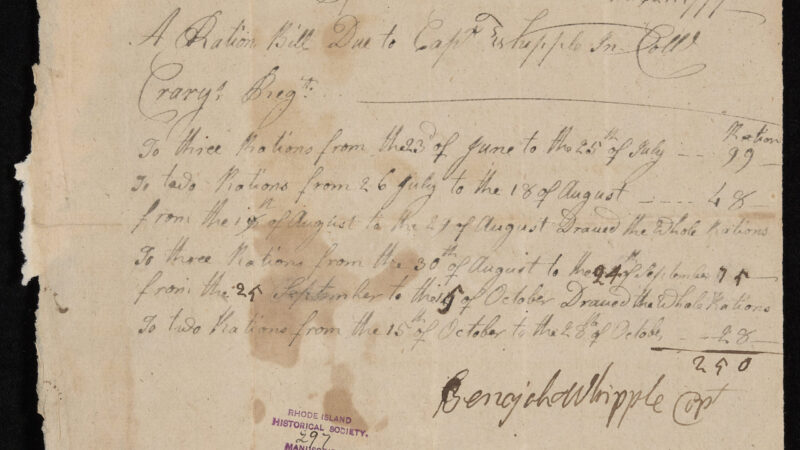 A Ration Bill Due to Capt Whipple In Coll
Crary's Reg.t
Ration
To three Rations from the 23d of June to the 25th of July --- 99
To two Rations from 26 July to the 18 of August ---- 48
from the 19 of August to the 29 of August Drawed the Whole Rations
To three Rations from the 30th of August to the 24 of September 75
from the 25 September to the 15 of October Drawed the Whole Rations
To two Rations from the 15th of October to the 28th of Octobe -- 28
250
Benojah Whipple Capt
RHODE ISLAND
HISTORICAL SOCIETY.
297